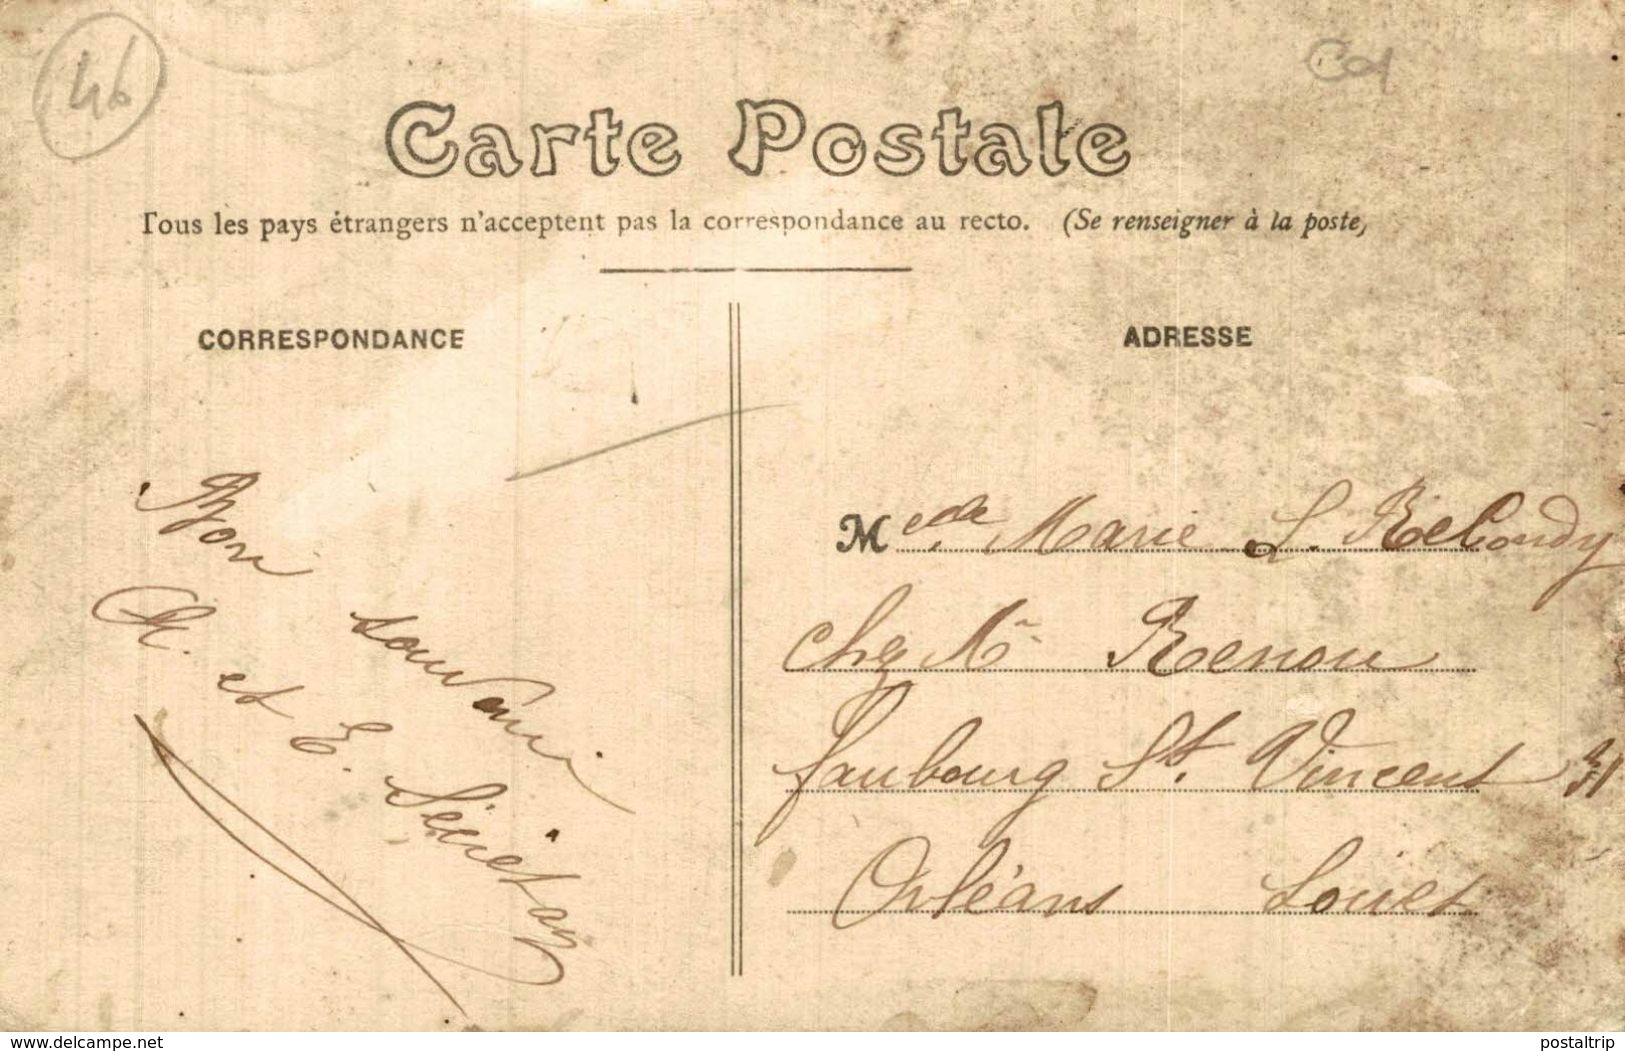 46
Carte Postale
Tous les pays étrangers n'acceptent pas la correspondance au recto. (Se renseigner à la poste)
CORRESPONDANCE
Bon souvenir
A. et E.
ADRESSE
Melle Marie L.
chez Mr Renou
faubourg St. Vincent 31
Orléans Loiret
www.delcampe.net
postaltrip